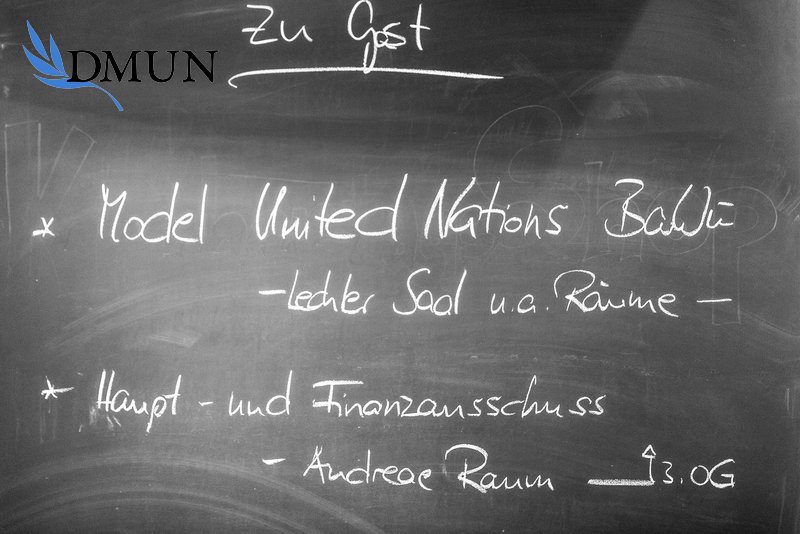 DMUN
Zu Gast
* Model United Nations BaWü
- Lechler Saal u.a. Räume -
* Haupt- und Finanzausschuss
- Andreae Raum 3.OG